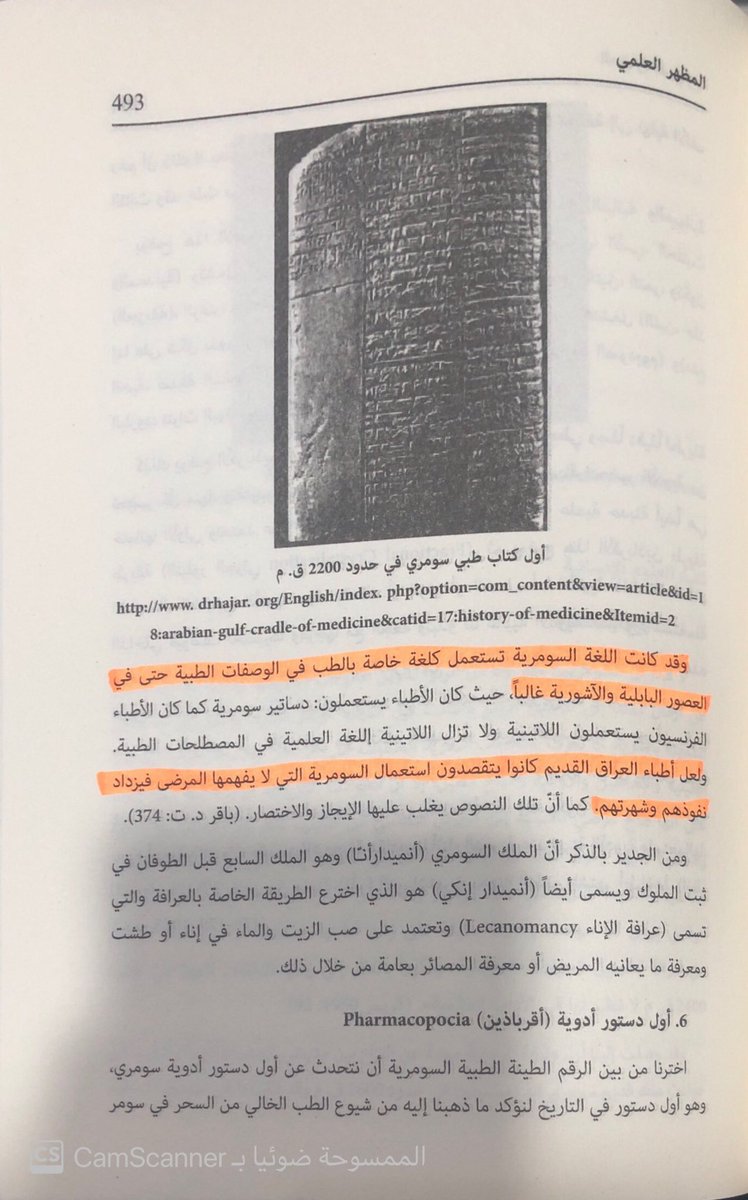 المظهر العلمي
493
أول كتاب طبي سومري في حدود 2200 ق. م
http://www. drhajar. org/English/index. php?option=com_content&view=article&id=1
8:arabian-gulf-cradle-of-medicine&catid=17:history-of-medicine&Itemid=2
وقد كانت اللغة السومرية تستعمل كلغة خاصة بالطب في الوصفات الطبية حتى في
العصور البابلية والآشورية غالباً، حيث كان الأطباء يستعملون: دساتير سومرية كما كان الأطباء
الفرنسيون يستعملون اللاتينية ولا تزال اللاتينية إللغة العلمية في المصطلحات الطبية.
ولعل أطباء العراق القديم كانوا يتقصدون استعمال السومرية التي لا يفهمها المرضى فيزداد
نفوذهم وشهرتهم. كما أنّ تلك النصوص يغلب عليها الإيجاز والاختصار. (باقر د. ت: 374).
ومن الجدير بالذكر أنّ الملك السومري (أنميدارأنـّا) وهو الملك السابع قبل الطوفان في
ثبت الملوك ويسمى أيضاً (أنميدار إنكي) هو الذي اخترع الطريقة الخاصة بالعرافة والتي
تسمى (عرافة الإناء Lecanomancy) وتعتمد على صب الزيت والماء في إناء أو طشت
ومعرفة ما يعانيه المريض أو معرفة المصائر بعامة من خلال ذلك.
6. أول دستور أدوية (أقرباذين) Pharmacopocia
اخترنا من بين الرقم الطينة الطبية السومرية أن نتحدث عن أول دستور أدوية سومري،
وهو أول دستور في التاريخ لنؤكد ما ذهبنا إليه من شيوع الطب الخالي من السحر في سومر
CS الممسوحة ضوئيا بـ CamScanner